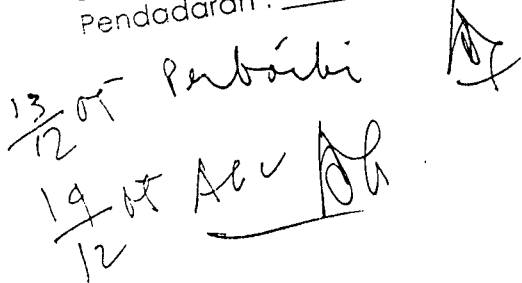 Pendadaran :
13/12 05 Perbaiki
19/12 05 Acc